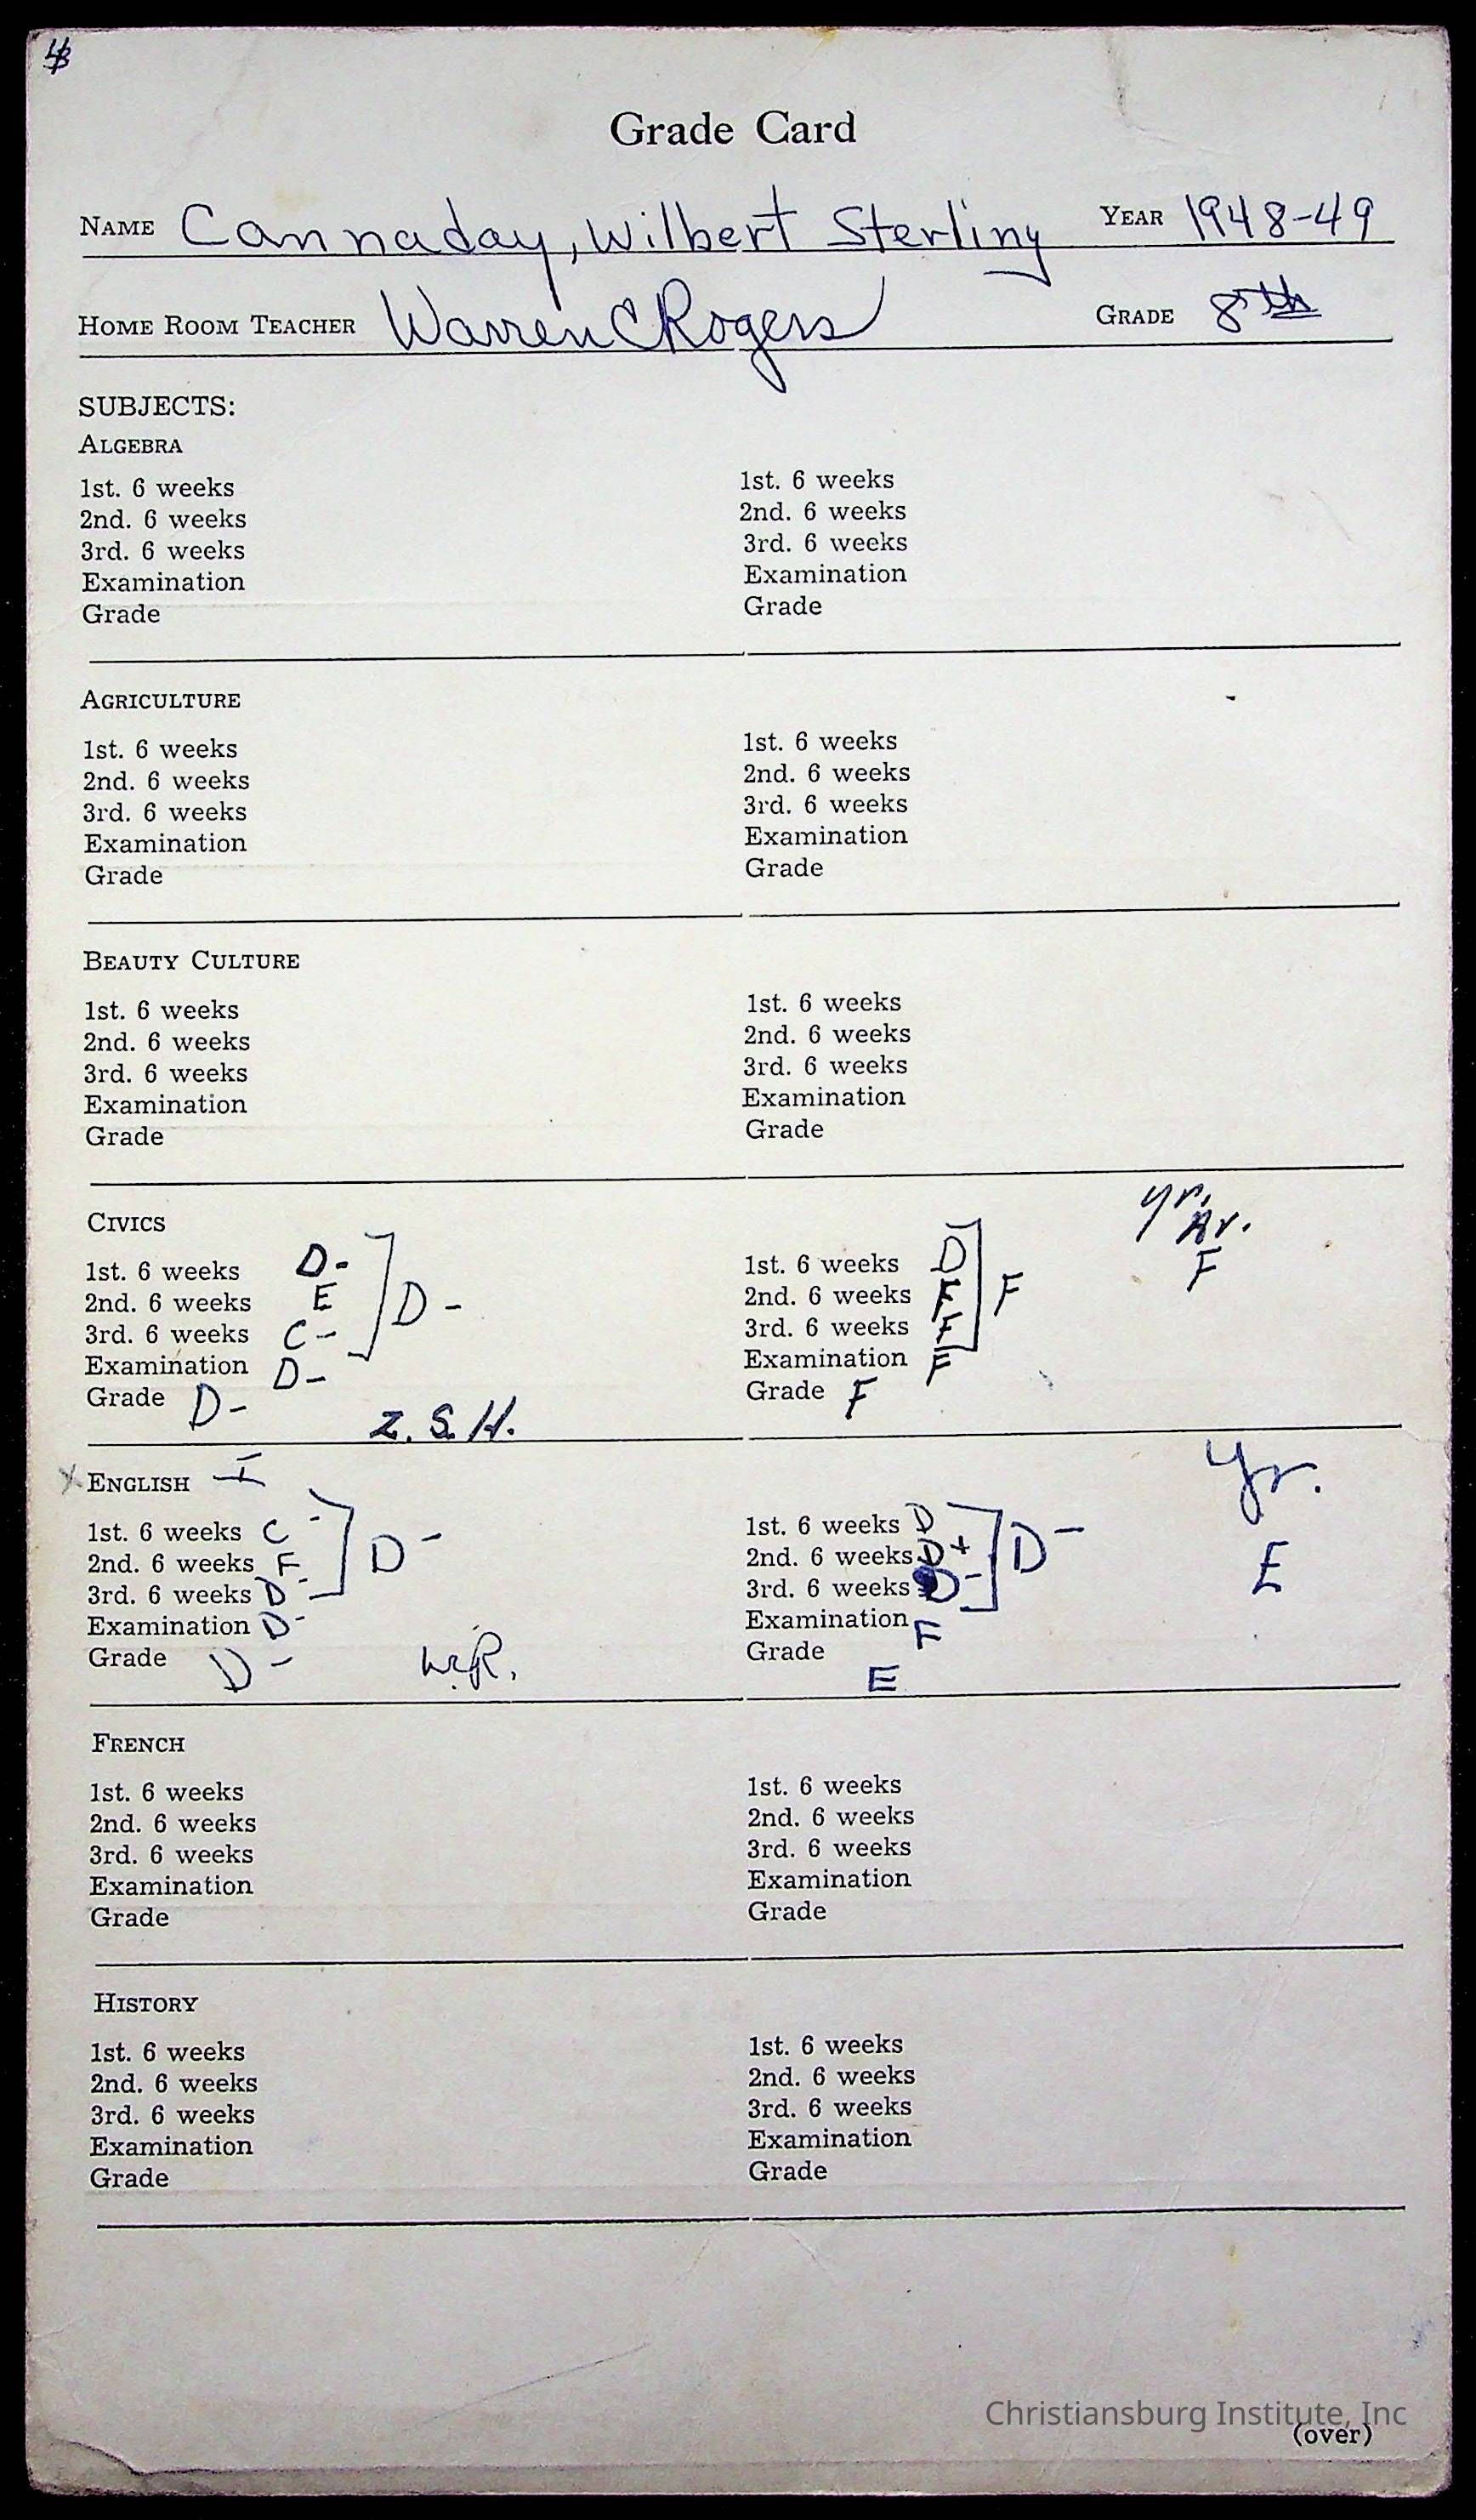 Grade Card
NAME Cannaday, Wilbert Sterling YEAR 1948-49
HOME ROOM TEACHER Warren C Rogers GRADE 8th
SUBJECTS:
ALGEBRA
1st. 6 weeks 1st. 6 weeks
2nd. 6 weeks 2nd. 6 weeks
3rd. 6 weeks 3rd. 6 weeks
Examination Examination
Grade Grade
AGRICULTURE
1st. 6 weeks 1st. 6 weeks
2nd. 6 weeks 2nd. 6 weeks
3rd. 6 weeks 3rd. 6 weeks
Examination Examination
Grade Grade
BEAUTY CULTURE
1st. 6 weeks 1st. 6 weeks
2nd. 6 weeks 2nd. 6 weeks
3rd. 6 weeks 3rd. 6 weeks
Examination Examination
Grade Grade
CIVICS yr. Av.
1st. 6 weeks D- 1st. 6 weeks D F
2nd. 6 weeks E D- 2nd. 6 weeks F F
3rd. 6 weeks C- 3rd. 6 weeks F
Examination D- Examination F
Grade D- Grade F
Z. S. H.
x ENGLISH I Yr.
1st. 6 weeks C- 1st. 6 weeks D
2nd. 6 weeks F D- 2nd. 6 weeks D+ D- E
3rd. 6 weeks D- 3rd. 6 weeks D-
Examination D- Examination F
Grade D- W.R. Grade E
FRENCH
1st. 6 weeks 1st. 6 weeks
2nd. 6 weeks 2nd. 6 weeks
3rd. 6 weeks 3rd. 6 weeks
Examination Examination
Grade Grade
HISTORY
1st. 6 weeks 1st. 6 weeks
2nd. 6 weeks 2nd. 6 weeks
3rd. 6 weeks 3rd. 6 weeks
Examination Examination
Grade Grade
Christiansburg Institute, Inc
(over)